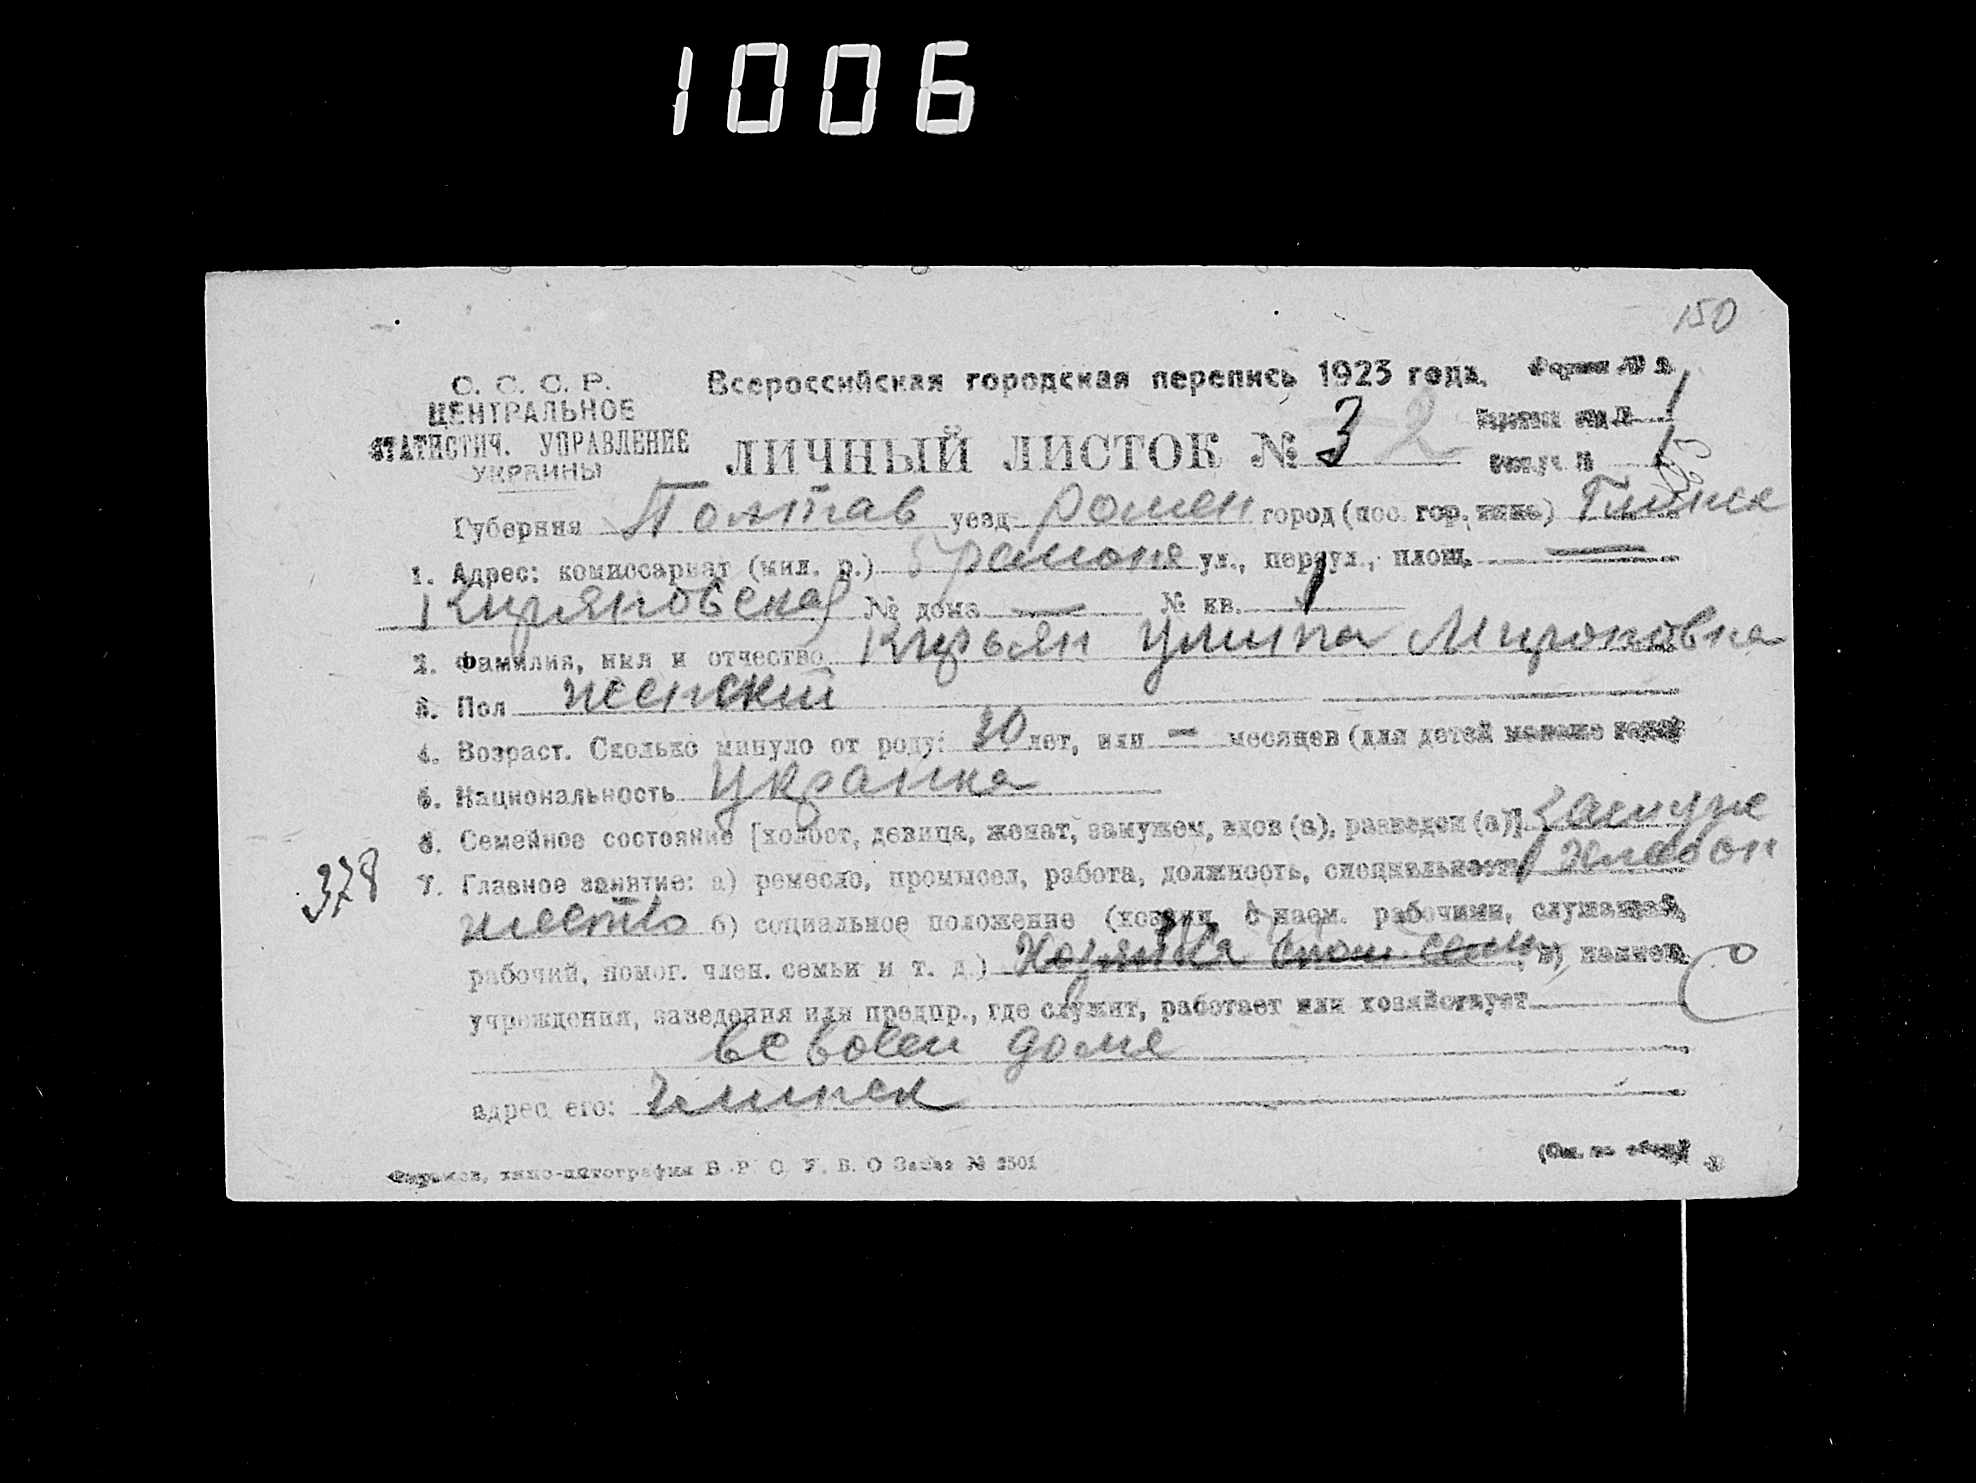 1006
150
С. С. С. Р.
ЦЕНТРАЛЬНОЕ
СТАТИСТИЧ. УПРАВЛЕНИЕ
УКРАИНЫ
Всероссийская городская перепись 1923 года.
ЛИЧНЫЙ ЛИСТОК № 3 2
Губерния Полтав уезд Ромен город (пос. гор. типа) Глинск
1. Адрес: комиссариат (мил. р.) ул., переул., площ. —
Кирьяновская № дома — № кв. 1
2. Фамилия, имя и отчество Кирьян Улита Мироновна
3. Пол женский
4. Возраст. Сколько минуло от роду: 30 лет, или — месяцев (для детей моложе года)
5. Национальность Украинка
6. Семейное состояние [холост, девица, женат, замужем, вдов (а), разведен (а)] Замуже
378
7. Главное занятие: а) ремесло, промысел, работа, должность, специальность
б) социальное положение (хозяин с наем. рабочими, служащий,
рабочий, помог. член. семьи и т. д.) Хозяйка в) наимен.
учреждения, заведения или предпр., где служит, работает или хозяйствует
доме
адрес его: Глинск